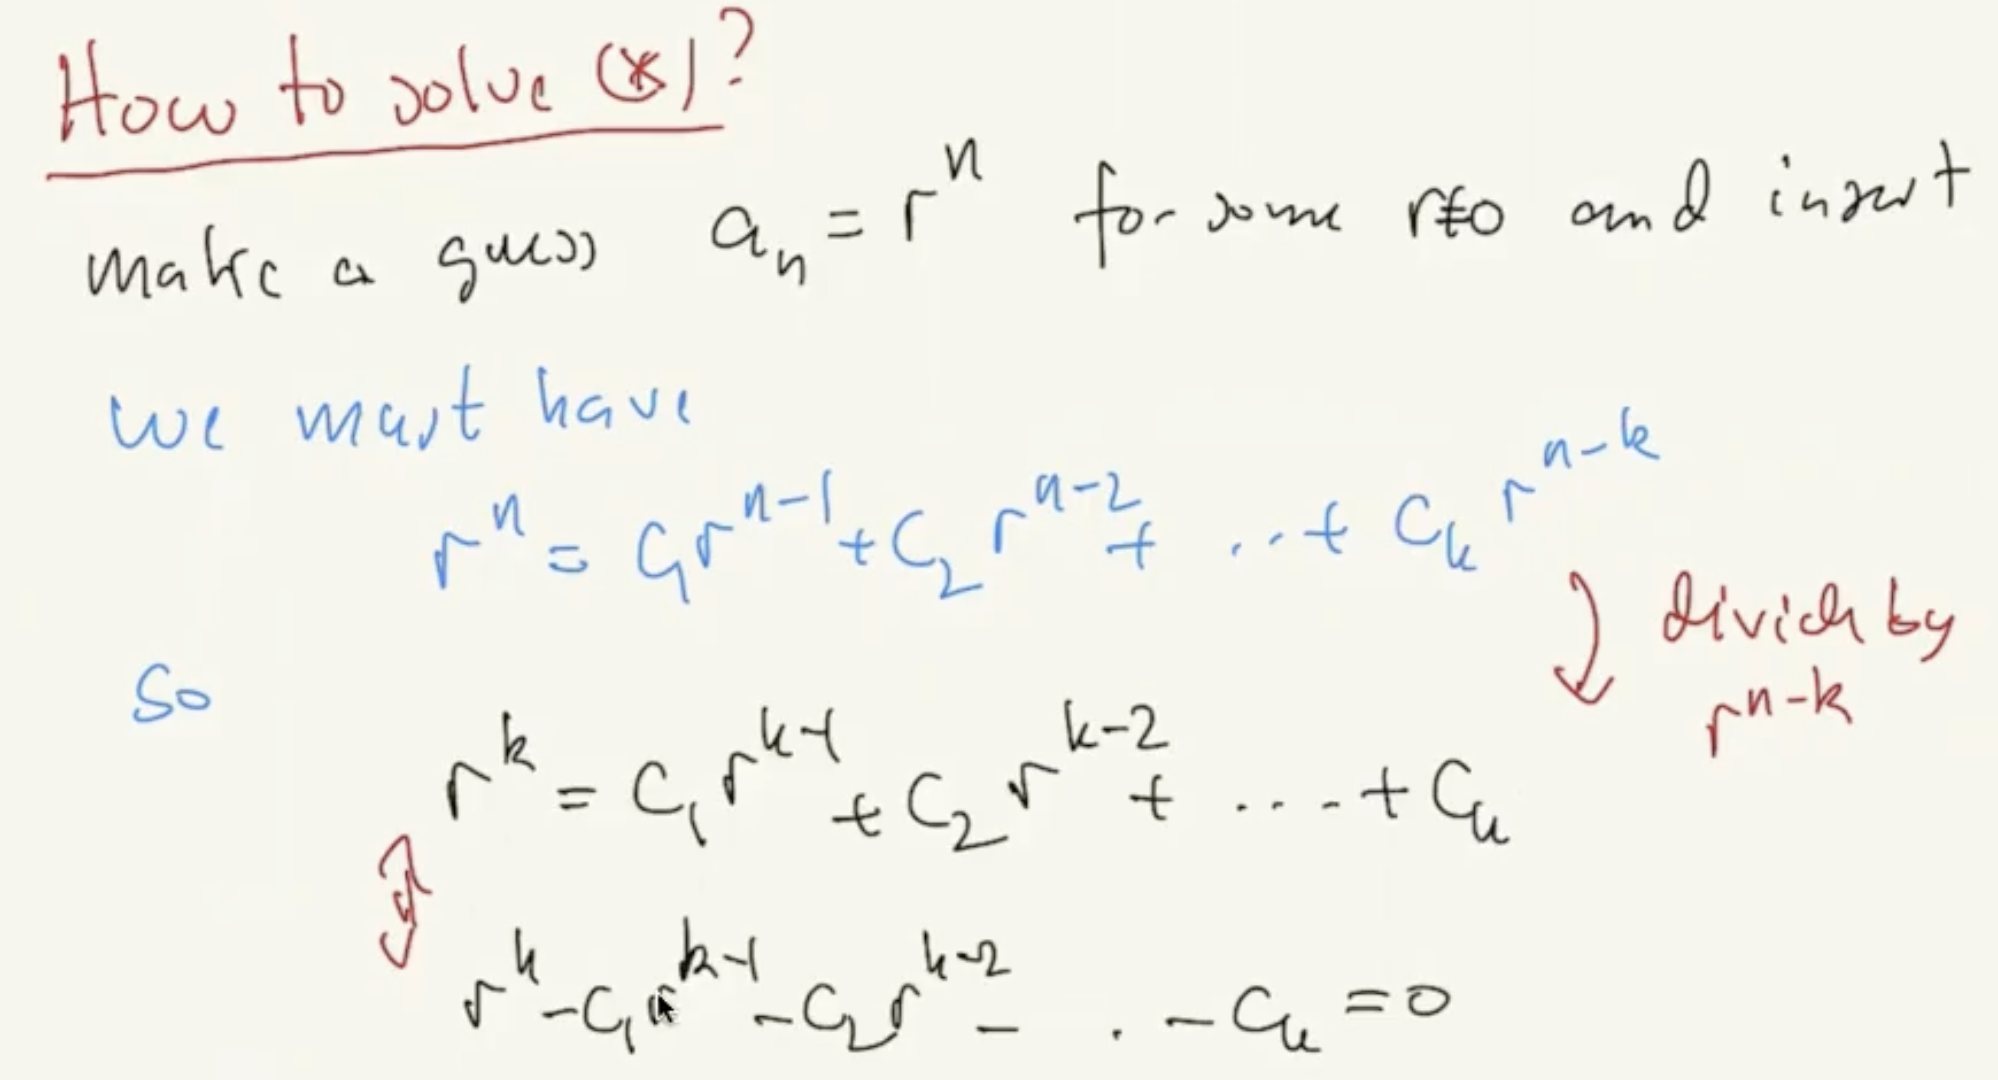 How to solve (*)?
make a guess aₙ = rⁿ for some r≠0 and insert
we must have
rⁿ = C₁rⁿ⁻¹ + C₂ rⁿ⁻² + ... + Cₖ rⁿ⁻ᵏ
divide by
rⁿ⁻ᵏ
So
rᵏ = C₁ rᵏ⁻¹ + C₂ rᵏ⁻² + .... + Cₖ
rᵏ - C₁ rᵏ⁻¹ - C₂ rᵏ⁻² - . - Cₖ = 0